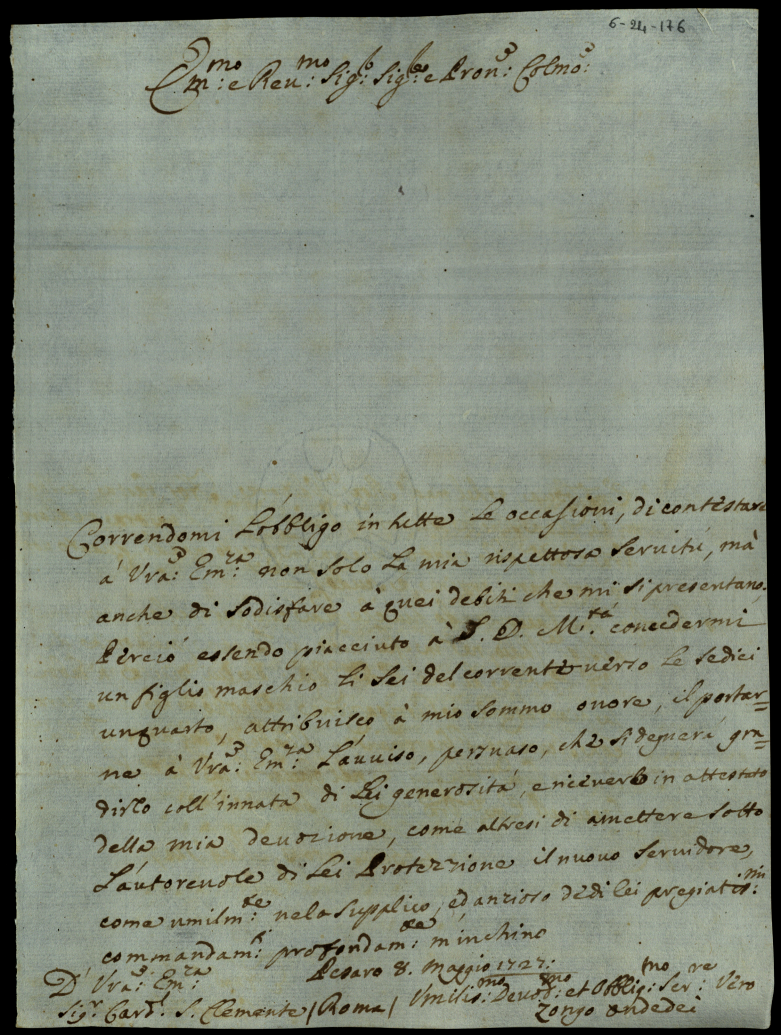 6-24-176
Emo: e Reumo: Sigr: Sigre: e Pron: Colmo:
Correndomi L'obbligo in tutte le occasioni, di contestare
à Vra: Emza: non solo la mia rispettosa servitù, mà
anche di sodisfare à quei debiti che mi si presentano.
Perciò essendo piacciuto à S. D. M.tá concedermi
un figlio maschio li sei del corrente verso le sedici
unquarto, attribuisco à mio sommo onore, il portar=
ne à Vra: Emza: L'auuiso, persuaso, che si degnerá gra=
dirlo coll'innata di Lei generositá, e riceverlo in attestato
della mia deuozione, come altresi di amettere sotto
L'autoreuole di Lei Protezzione il nuouo seruidore,
come umilmte: nela supplico, ed anzioso dedi lei pregiatissmi:
commandamti: profondamte: m'inchino
Pesaro 8. Maggio 1727:
D' Vra: Emza:
Sigr Cardl: S. Clemente / Roma /
Umilismo: Deuotsmo: et Obbligmo: Serre: Vero
Zongo ondedei